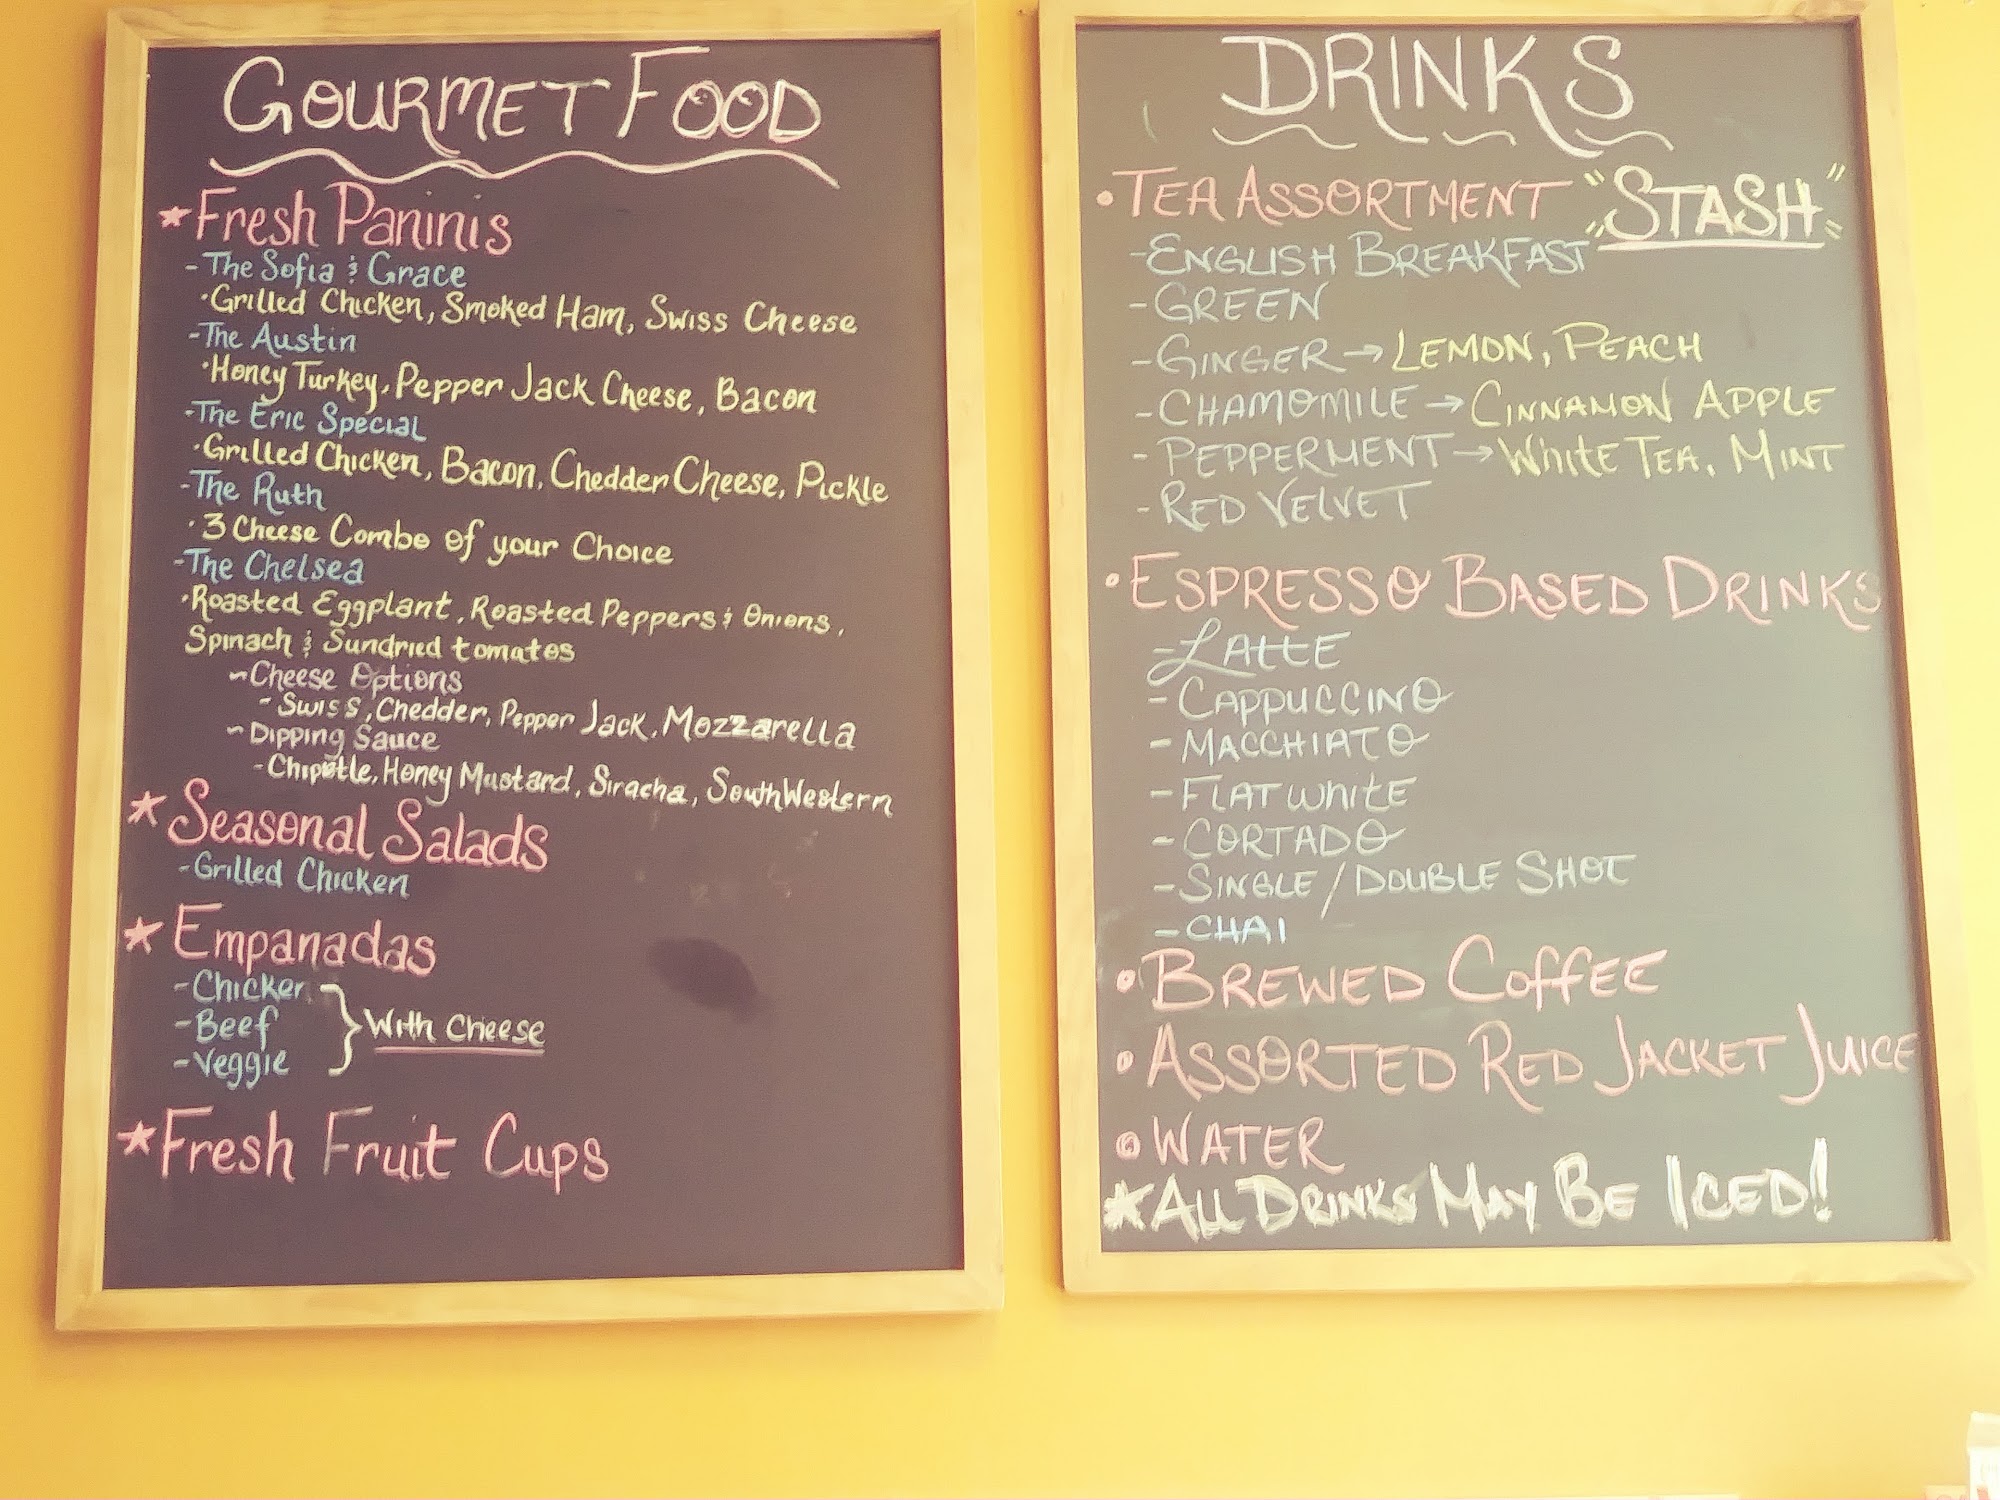 GOURMET FOOD
★Fresh Paninis
-The Sofia & Grace
·Grilled Chicken, Smoked Ham, Swiss Cheese
-The Austin
·Honey Turkey, Pepper Jack Cheese, Bacon
-The Eric Special
·Grilled Chicken, Bacon, Chedder Cheese, Pickle
-The Ruth
·3 Cheese Combo of your Choice
-The Chelsea
·Roasted Eggplant, Roasted Peppers & Onions,
Spinach & Sundried tomatos
~Cheese Options
-Swiss, Chedder, Pepper Jack, Mozzarella
~Dipping Sauce
-Chipotle, Honey Mustard, Siracha, SouthWestern
★Seasonal Salads
-Grilled Chicken
★Empanadas
-Chicken
-Beef
-Veggie
} With Cheese
★Fresh Fruit Cups
DRINKS
•TEA ASSORTMENT "STASH"
-ENGLISH BREAKFAST
-GREEN
-GINGER→LEMON, PEACH
-CHAMOMILE→CINNAMON APPLE
-PEPPERMENT→WHITE TEA, MINT
-RED VELVET
•ESPRESSO BASED DRINKS
-LATTE
-CAPPUCCINO
-MACCHIATO
-FLAT WHITE
-CORTADO
-SINGLE/DOUBLE SHOT
-CHAI
•BREWED COFFEE
•ASSORTED RED JACKET JUICE
•WATER
★ALL DRINKS MAY BE ICED!